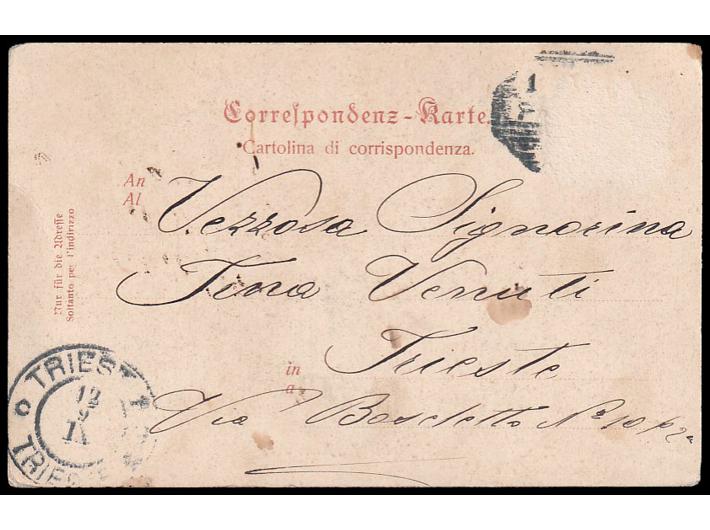 Correspondenz-Karte.
Cartolina di corrispondenza.
An
Al
Vezzosa Signorina
Tina Venuti
in
a
Trieste
Via Boschetto No 10 p 2o
Nur für die Adresse
Soltanto per l'indirizzo
TRIEST 1
12
9
TRIESTE